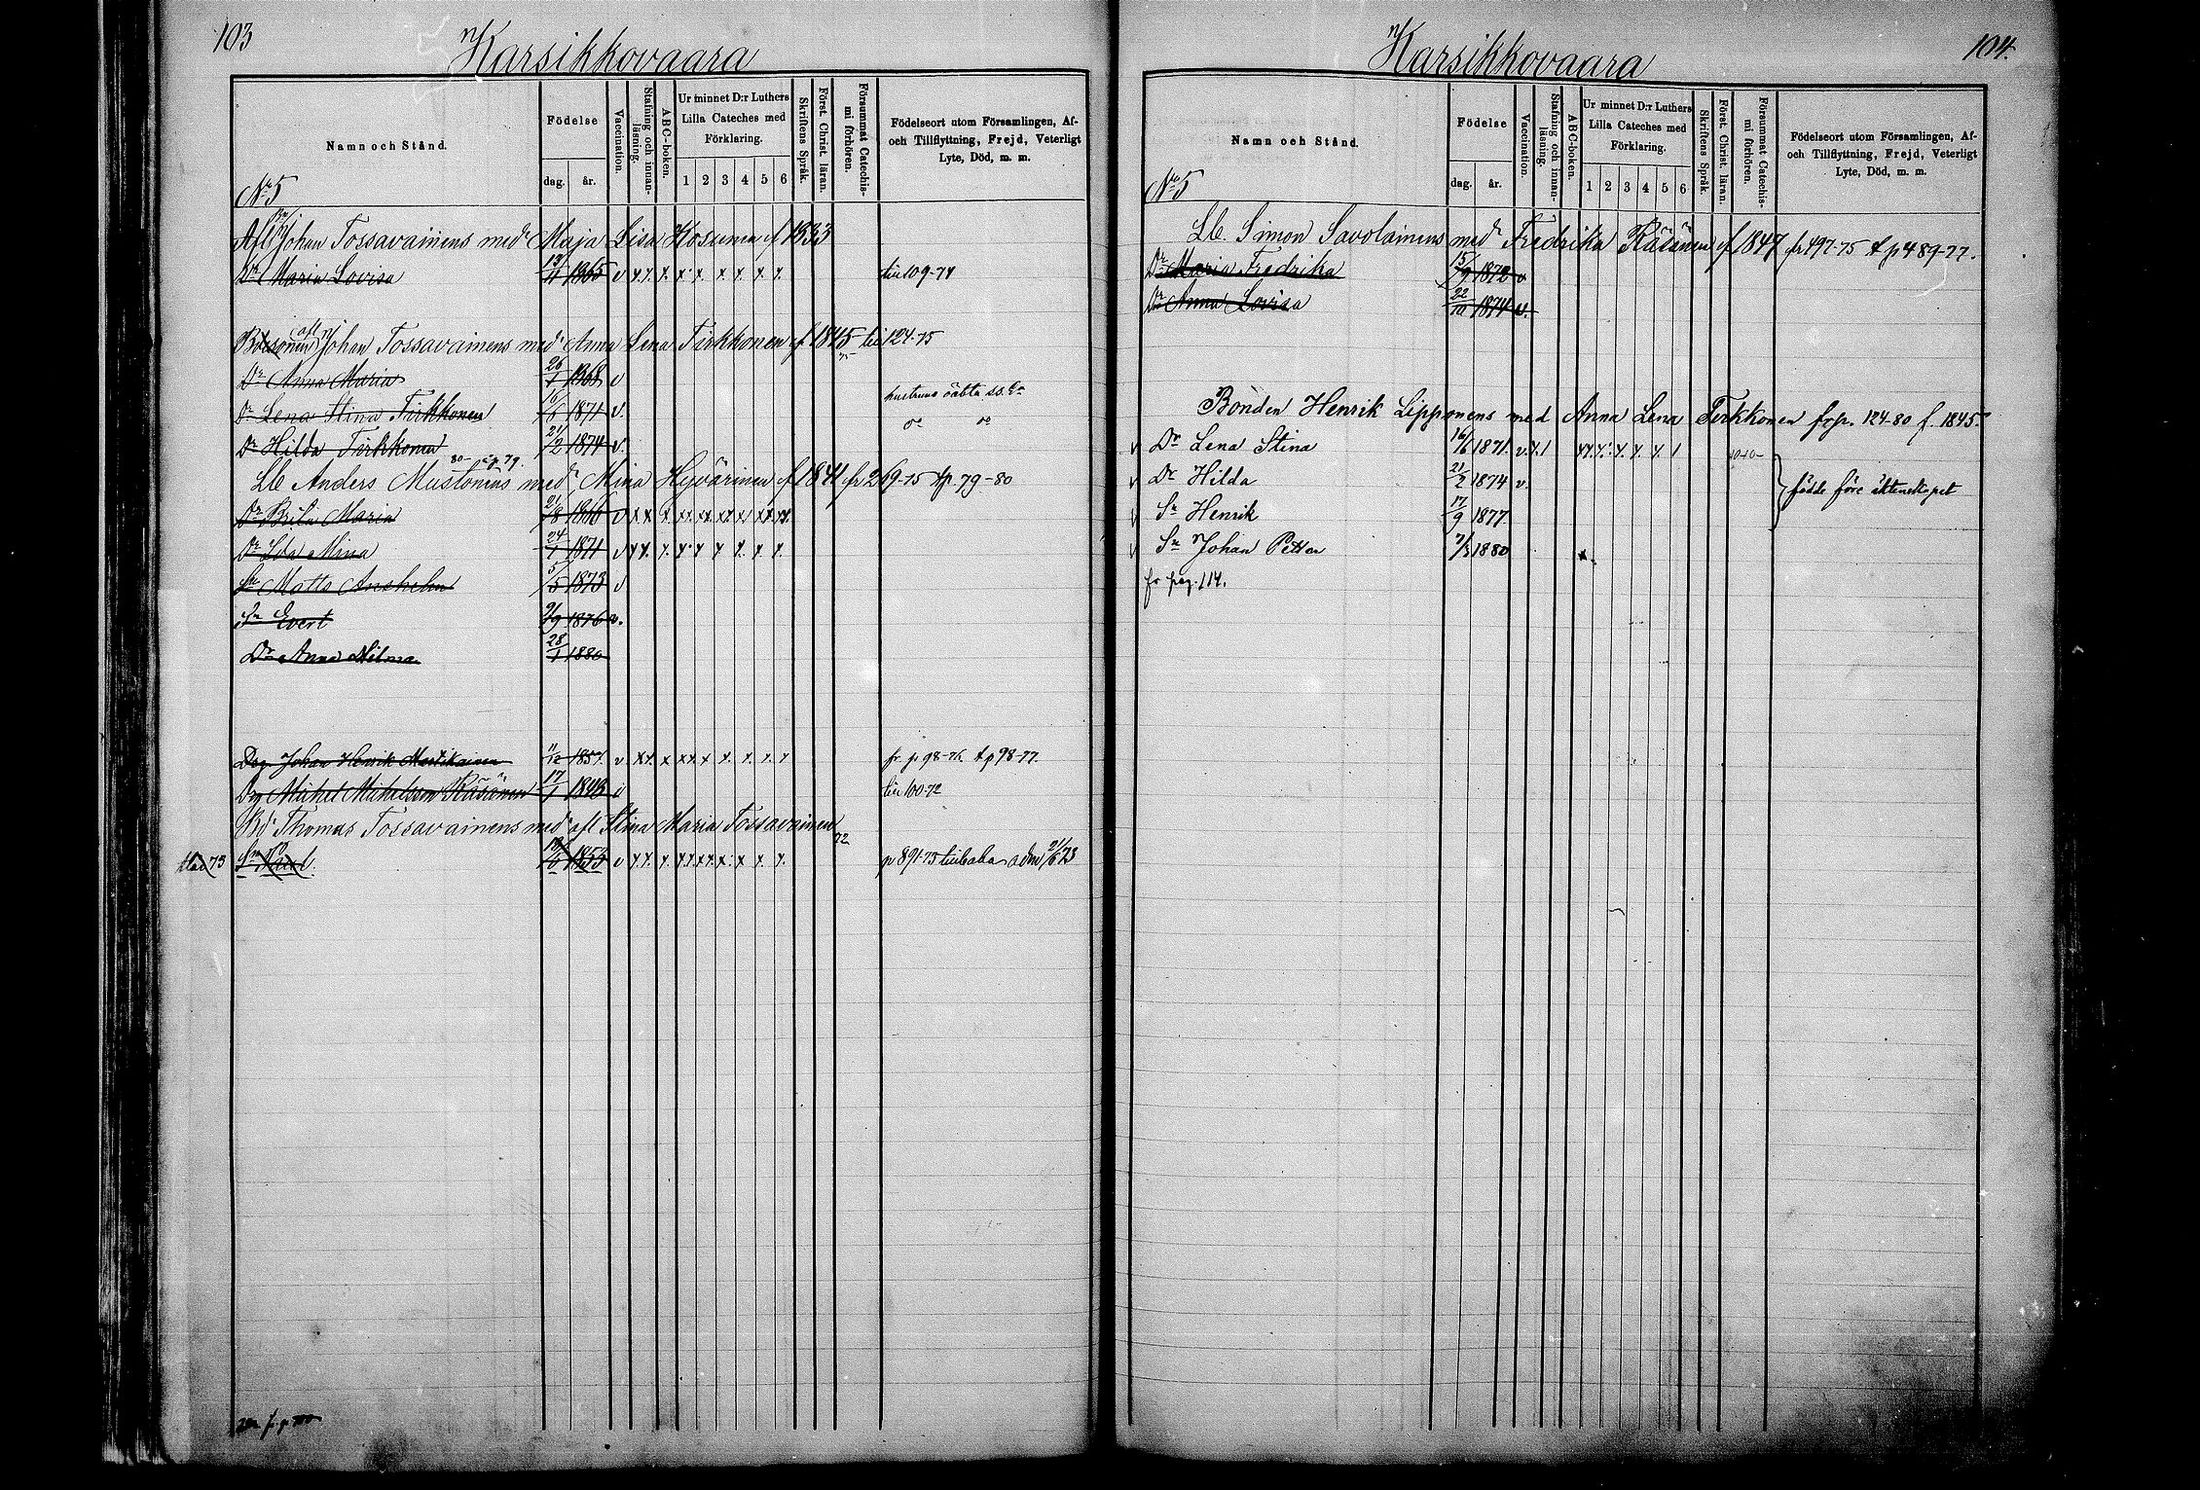 103
Karsikkovaara
Namn och Stånd.
Födelse
dag. år.
Vaccination.
Stafning och innan-
läsning.
ABC-boken.
Ur minnet D:r Luthers
Lilla Cateches med
Förklaring.
1 2 3 4 5 6
Skriftens Språk.
Först. Christ. läran.
Försummat Catechis-
mi förhören.
Födelseort utom Församlingen, Af-
och Tillflyttning, Frejd, Veterligt
Lyte, Död, m. m.
No 5
Afl. Johan Tossavainens med Maja Lisa Kosunen f 1833
Dr Maria Lovisa 13/11 1865 v xx x x x x x x x till 109-74
Johan Tossavainens med Anna Lena Tirkkonen f 1845 till 124-75
Dr Anna Maria 26/1 1868 v
Dr Lena Stina Tirkkonen 16/6 1871 v. hustruns oäkta
Dr Hilda Tirkkonen 21/2 1874 v. do do
80- 79.
Lb Anders Mustonens med Mina Hyvärinen f 1841 fr 269-75 tp. 79-80
Dr Brita Maria 21/8 1866 v xx x xx xx x x xx xx
Dr Ida Mina 24/1 1871 v xx x x x x x x x
Sn Matts Anshelm 5/5 1873 v
Sn Evert 9/9 1876 v.
Dr Anna Hilma 28/1 1880
Drg. Johan Henrik Mustikainen 11/12 1857 v xx x xx x x x x x fr. p 98-76 t p 98-77.
Drg Michel Michelsson Räsänen 17/1 1848 v till 100-72
Bd Thomas Tossavainens med afl Stina Maria Tossavainen
73 Sn Paul. 1853 v xx x xx xx x x x x 72 p 891-73 tillbaka adm 21/6 73
104.
Karsikkovaara
Namn och Stånd.
Födelse
dag. år.
Vaccination.
Stafning och innan-
läsning.
ABC-boken.
Ur minnet D:r Luthers
Lilla Cateches med
Förklaring.
1 2 3 4 5 6
Skriftens Språk.
Först. Christ. läran.
Försummat Catechis-
mi förhören.
Födelseort utom Församlingen, Af-
och Tillflyttning, Frejd, Veterligt
Lyte, Död, m. m.
No 5
Lb. Simon Savolainens med Fredrika Räsänen f 1847 fr 497-75 t p 489-77.
Dr Maria Fredrika 15/9 1872 v
Dr Anna Lovisa 22/10 1874 v.
Bonden Henrik Lipponens med Anna Lena Tirkkonen fr p. 124-80 f. 1845
v Dr Lena Stina 16/6 1871. v. x 1 xx x x x x 1
v Dr Hilda 21/2 1874 v. födde före äktenskapet
v Sn Henrik 17/9 1877.
v Sn Johan Petter 7/3 1880 x
fr pag. 114.